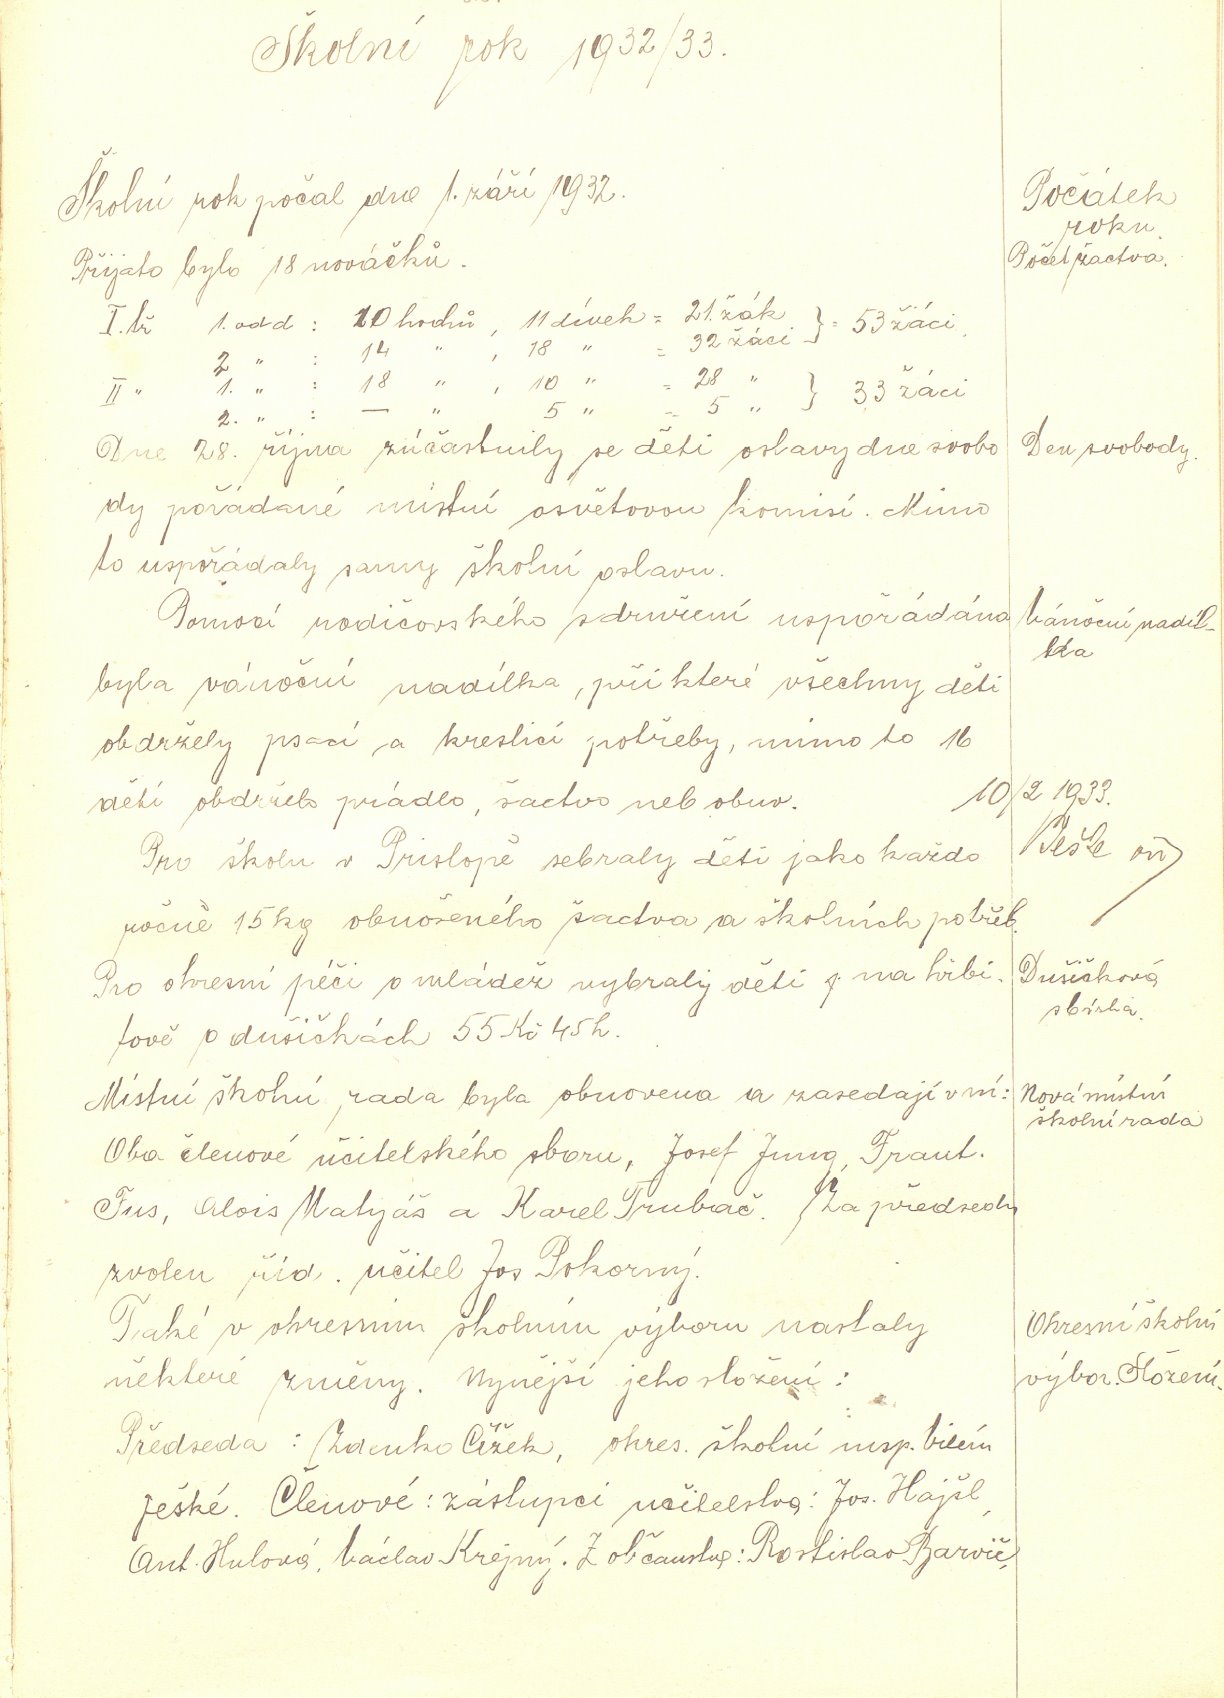 Školní rok 1932/33.
Školní rok počal dne 1. září 1932.
Počátek
roku.
Přijato bylo 18 nováčků.
Počet žactva.
I. tř 1. odd : 10 hochů, 11 dívek = 21 žák } = 53 žáci.
2 " : 14 " , 18 " = 32 žáci
II " 1. " : 18 " , 10 " = 28 " } 33 žáci
2. " : — " 5 " = 5 "
Dne 28. října zúčastnily se děti oslavy dne svobo
Den svobody.
dy pořádané místní osvětovou komisí. Mimo
to uspořádaly samy školní oslavu.
Pomocí rodičovského sdružení uspořádána
Vánoční nadíl-
ka
byla vánoční nadílka, při které všechny děti
obdržely psací a kreslicí potřeby, mimo to 16
dětí obdrželo prádlo, šactvo neb obuv.
10/2 1933.
Pro školu v Prislopě sebraly děti jako každo
ročně 15 kg obnošeného šactva a školních potřeb.
Pro okresní péči o mládež vybraly děti na hřbi-
Dušičková
sbírka.
tově o dušičkách 55 Kč 45 h.
Místní školní rada byla obnovena a zasedají v ní:
Nová místní
školní rada
Oba členové učitelského sboru, Josef Jung, Frant.
Fus, Alois Matyáš a Karel Trubač. Za předsedu
zvolen říd. učitel Jos Pokorný.
Také v okresním školním výboru nastaly
Okresní školní
některé změny. Nynější jeho složení:
výbor. Složení.
Předseda : Zdenko Čížek, okres. školní insp. Vilém
Ješké. Členové: zástupci učitelstva: Jos. Hajšl,
Ant. Hulová, Václav Krejný. Z občanstva: Rostislav Barvič,